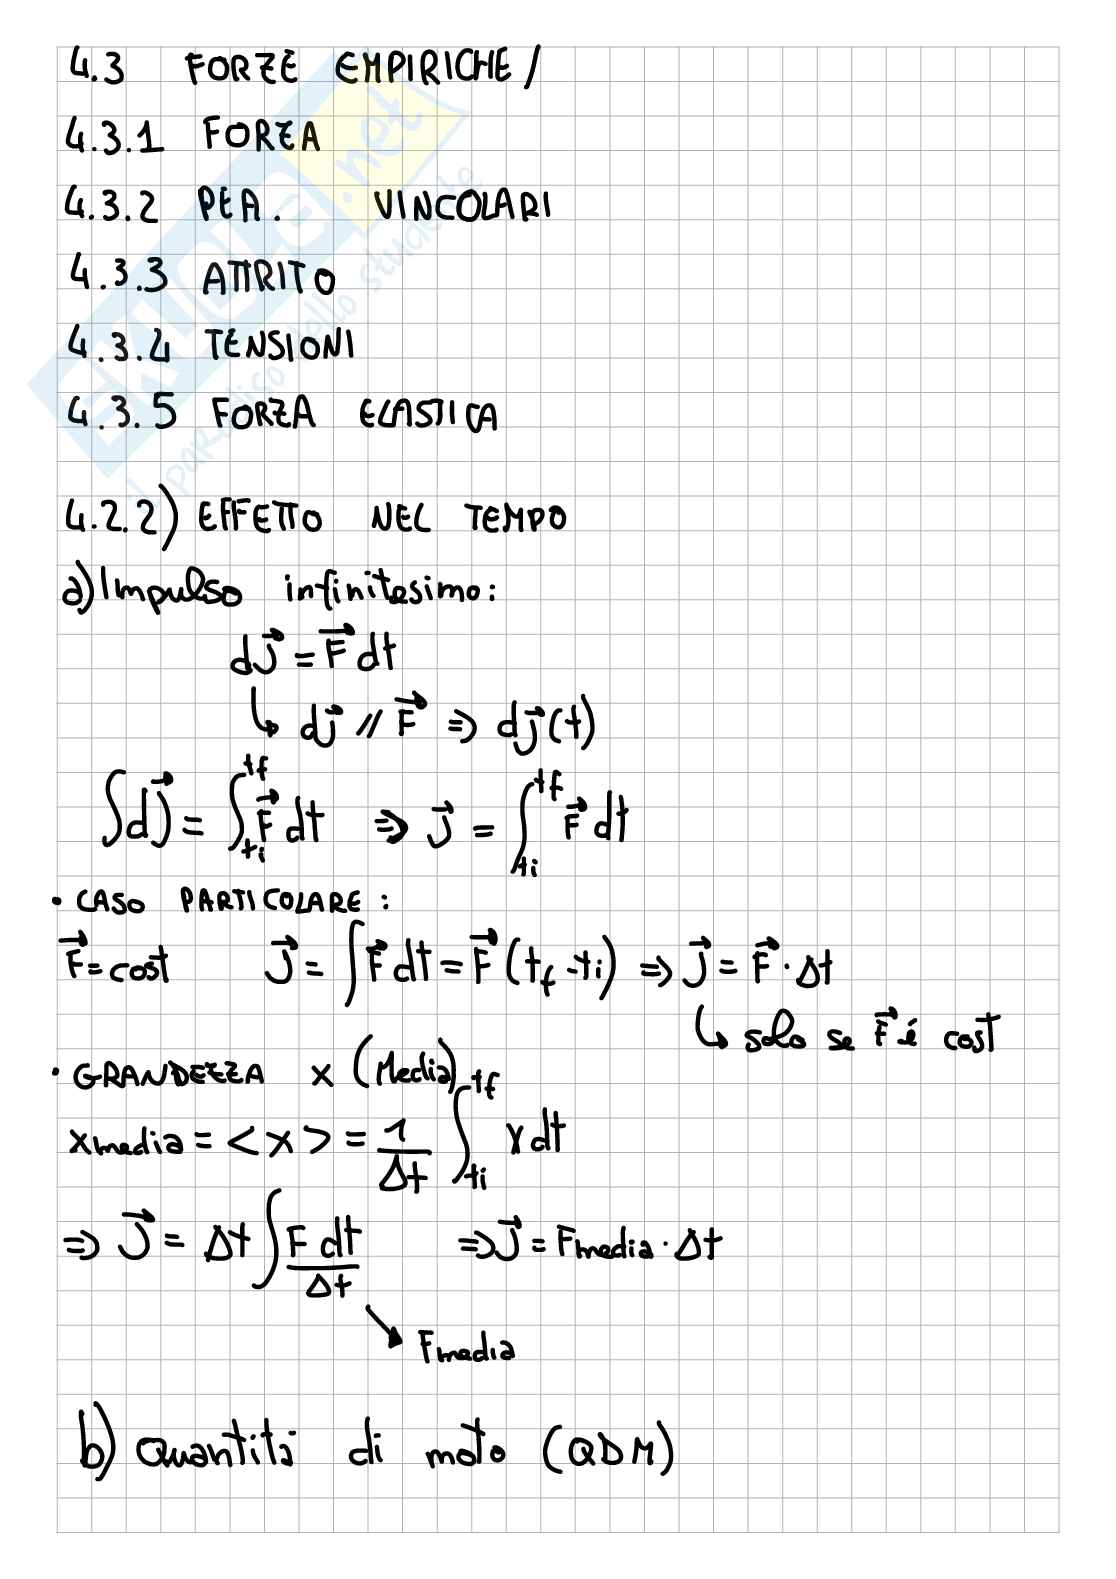 4.3 FORZE EMPIRICHE/
4.3.1 FORZA
4.3.2 PEA. VINCOLARI
4.3.3 ATTRITO
4.3.4 TENSIONI
4.3.5 FORZA ELASTICA
4.2.2) EFFETTO NEL TEMPO
a) Impulso infinitesimo:
dJ⃗ = F⃗ dt
↳ dJ⃗ // F⃗ ⇒ dJ⃗(t)
∫dJ⃗ = ∫_{ti}^{tf} F⃗ dt ⇒ J⃗ = ∫_{ti}^{tf} F⃗ dt
• CASO PARTICOLARE:
F⃗ = cost J⃗ = ∫F⃗ dt = F⃗ (tf - ti) ⇒ J⃗ = F⃗ · Δt
↳ solo se F⃗ é cost
• GRANDEZZA x (Media)
xmedia = <x> = 1/Δt ∫_{ti}^{tf} x dt
⇒ J⃗ = Δt ∫ F dt/Δt ⇒ J⃗ = Fmedia · Δt
↘ Fmedia
b) Quantità di moto (QDM)
SKUOLA.net
il paradiso dello studente